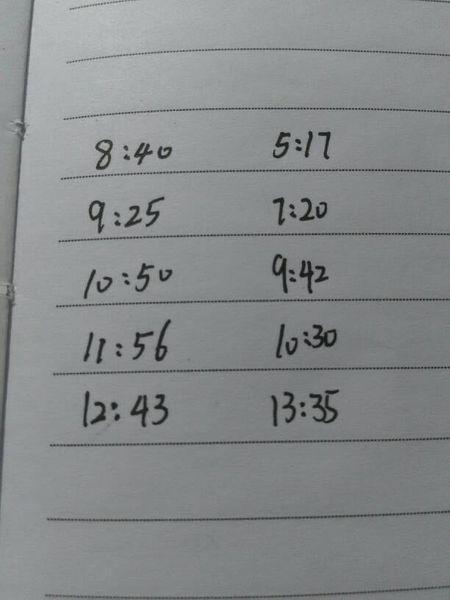 8:40 5:17
9:25 7:20
10:50 9:42
11:56 10:30
12:43 13:35